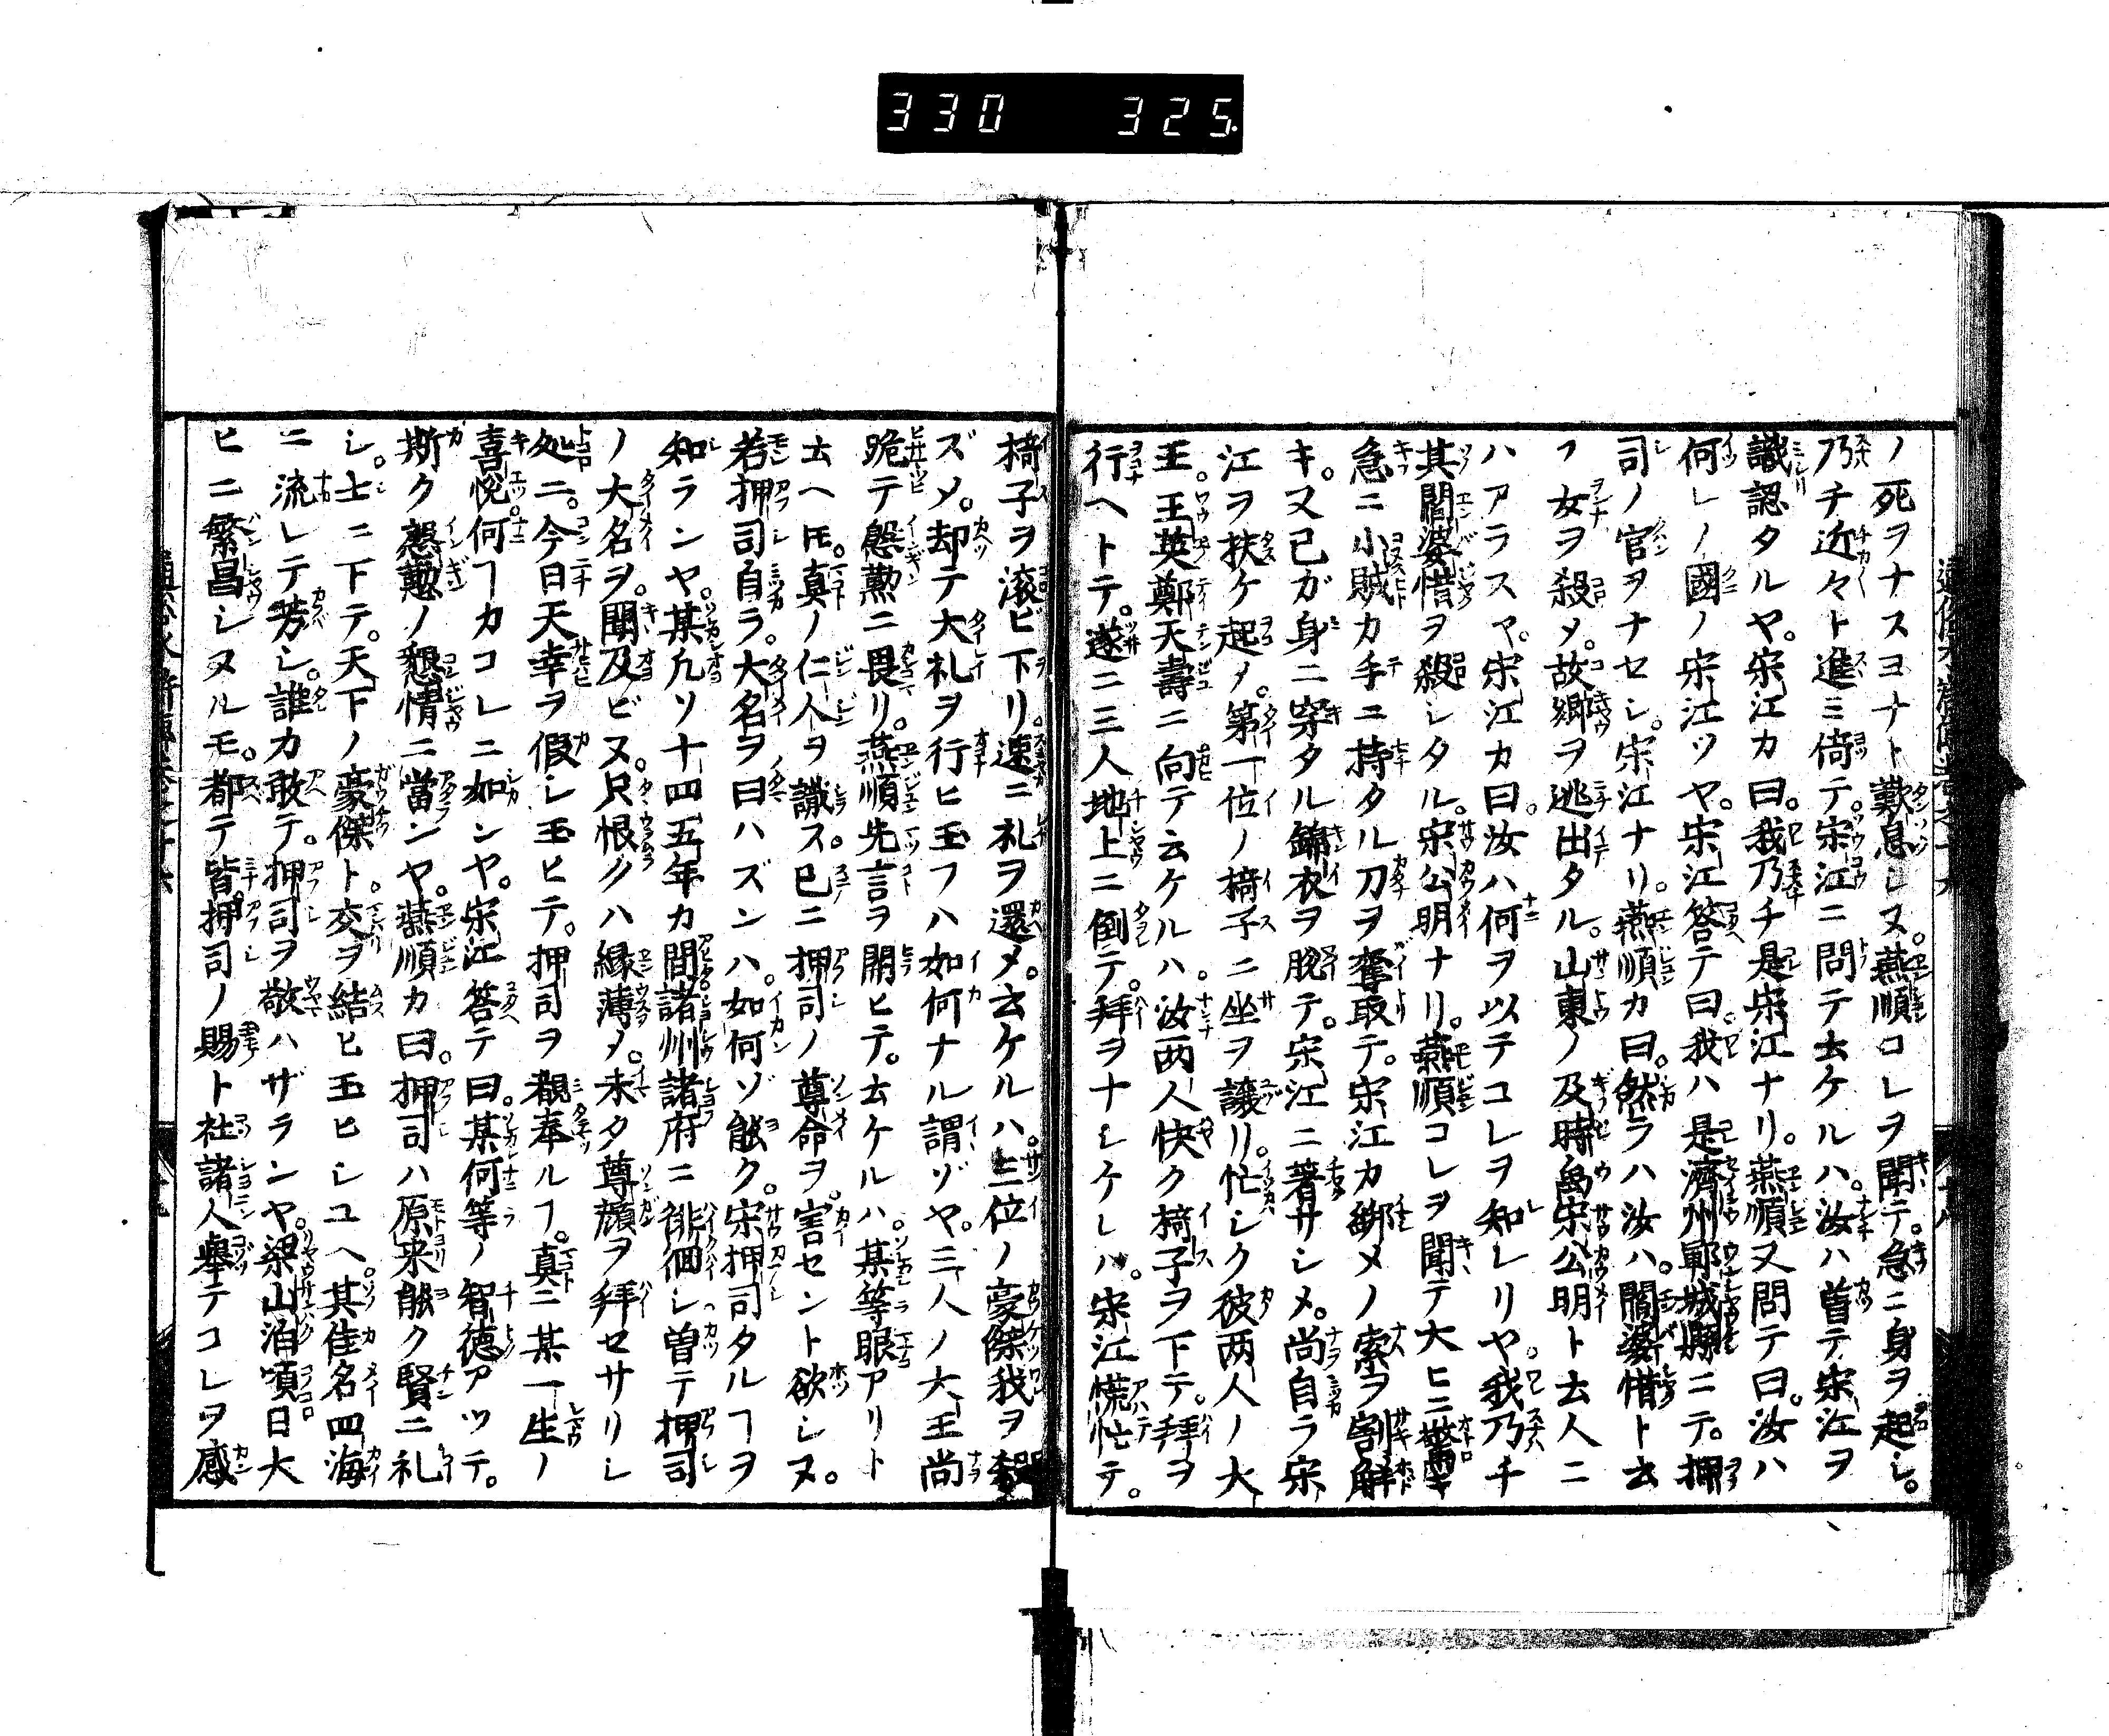 330 325
ノ死ヲナスヨナト歎息シヌ。燕順コレヲ聞テ。急ニ身ヲ起シ。
乃チ近々ト進ミ倚テ。宋江ニ問テ云ケルハ。汝ハ曽テ宋江ヲ
識認タルヤ。宋江カ曰。我乃チ是宋江ナリ。燕順又問テ曰。汝ハ
何レノ國ノ宋江ツヤ。宋江答テ曰。我ハ是濟州鄆城縣ニテ。押
司ノ官ヲナセシ。宋江ナリ。燕順カ曰。然ラハ汝ハ。閻婆惜ト云
フ女ヲ殺メ。故郷ヲ逃出タル。山東ノ及時雨宋公明ト云人ニ
ハアラスヤ。宋江カ曰。汝ハ何ヲ以テコレヲ知レリヤ。我乃チ
其閻婆惜ヲ殺シタル。宋公明ナリ。燕順コレヲ聞テ大ヒニ驚キ
急ニ小賊カ手ニ持タル刀ヲ奪取テ。宋江カ綁メノ索ヲ割解
キ。又已ガ身ニ穿タル錦衣ヲ脱テ。宋江ニ著サシメ。尚自ラ宋
江ヲ扶ケ起メ。第一位ノ椅子ニ坐ヲ讓リ。忙シク彼両人ノ大
王。王英鄭天壽ニ向テ云ケルハ。汝両人快ク椅子ヲ下テ。拜ヲ
行ヘトテ。遂ニ三人地上ニ倒テ。拜ヲナシケレハ。宋江慌忙テ。
椅子ヲ滚ビ下リ。速ニ礼ヲ還メ。云ケルハ。三位ノ豪傑我ヲ殺
ズメ。却テ大礼ヲ行ヒ玉フハ如何ナル謂ゾヤ。三人ノ大王尚
跪テ慇懃ニ畏リ。燕順先言ヲ開ヒテ。云ケルハ。某等眼アリト
云ヘ𪜈。真ノ仁人ヲ識ス。已ニ押司ノ尊命ヲ。害セント欲シヌ。
若押司自ラ。大名ヲ曰ハズンハ。如何ゾ能ク。宋押司タルヿヲ
知ランヤ。某九ソ十四五年カ間諸州諸府ニ徘徊シ曽テ押司
ノ大名ヲ。聞及ビヌ。只恨クハ縁薄メ。未タ尊顔ヲ拜セサリシ
処ニ。今日天幸ヲ假シ玉ヒテ。押司ヲ覩奉ルヿ。真ニ某一生ノ
喜悦何ヿカコレニ如ンヤ。宋江答テ曰。某何等ノ智徳アツテ。
斯ク慇懃ノ懇情ニ當ンヤ。燕順カ曰。押司ハ原来能ク賢ニ礼
シ。士ニ下テ。天下ノ豪傑ト。交ヲ結ヒ玉ヒシユヘ。其佳名四海
ニ流レテ芳シ。誰カ敢テ。押司ヲ敬ハザランヤ。梁山泊頃日大
ヒニ繁昌シヌルモ。都テ皆押司ノ賜ト社諸人擧テコレヲ感